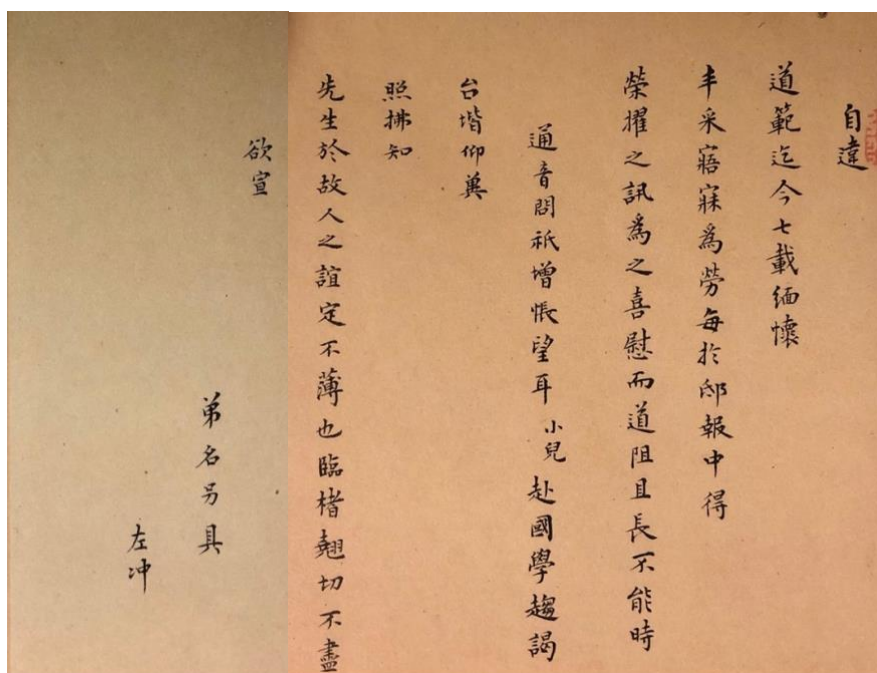 自違
道範迄今七載緬懷
丰采寤寐為勞每於邸報中得
榮擢之訊為之喜慰而道阻且長不能時
通音問祇增悵望耳小兒赴國學趨謁
台堦仰冀
照拂知
先生於故人之誼定不薄也臨楮翹切不盡
欲宣
弟名另具
左冲